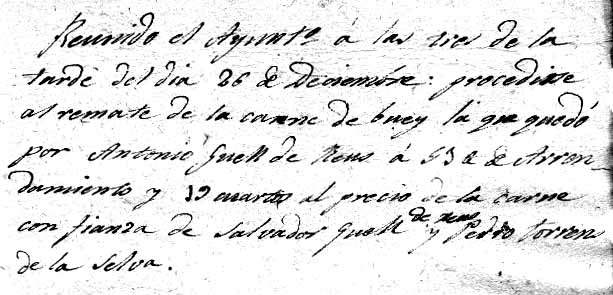 Reunido el Ayuntº á las tres de la
tarde del dia 26 de Deciembre: procedise
al remate de la carne de buey la que quedó
por Antonio Guell de Reus á 53 de Arren_
damiento y 19 cuartos al precio de la carne
con fianza de Salvador Guell de Reus y Pedro Torren
de la Selva.